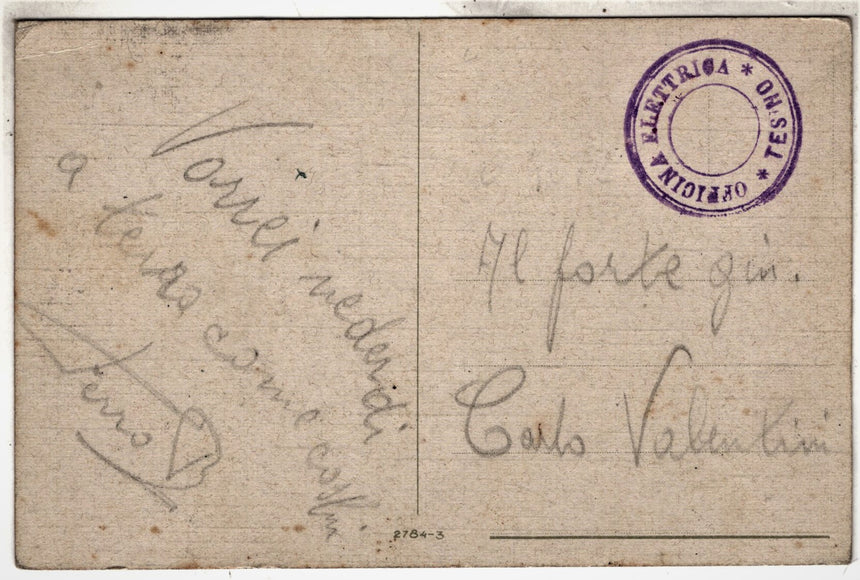 Vorrei vederdi
a terra come costini
Ferro B
OFFICINA ELETTRICA * TESINO *
Al forte gin.
Carlo Valentini
2784-3